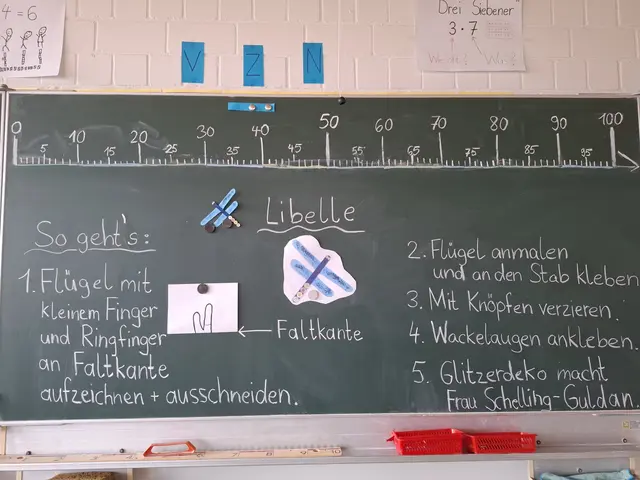 4 = 6
Drei Siebener
3 · 7
V Z N
0 10 20 30 40 50 60 70 80 90 100
5 15 25 35 45 55 65 75 85 95
Libelle
So geht's:
1. Flügel mit
kleinem Finger
und Ringfinger
an Faltkante
aufzeichnen + ausschneiden.
Faltkante
2. Flügel anmalen
und an den Stab kleben
3. Mit Knöpfen verzieren.
4. Wackelaugen ankleben.
5. Glitzerdeko macht
Frau Schelling-Guldan.